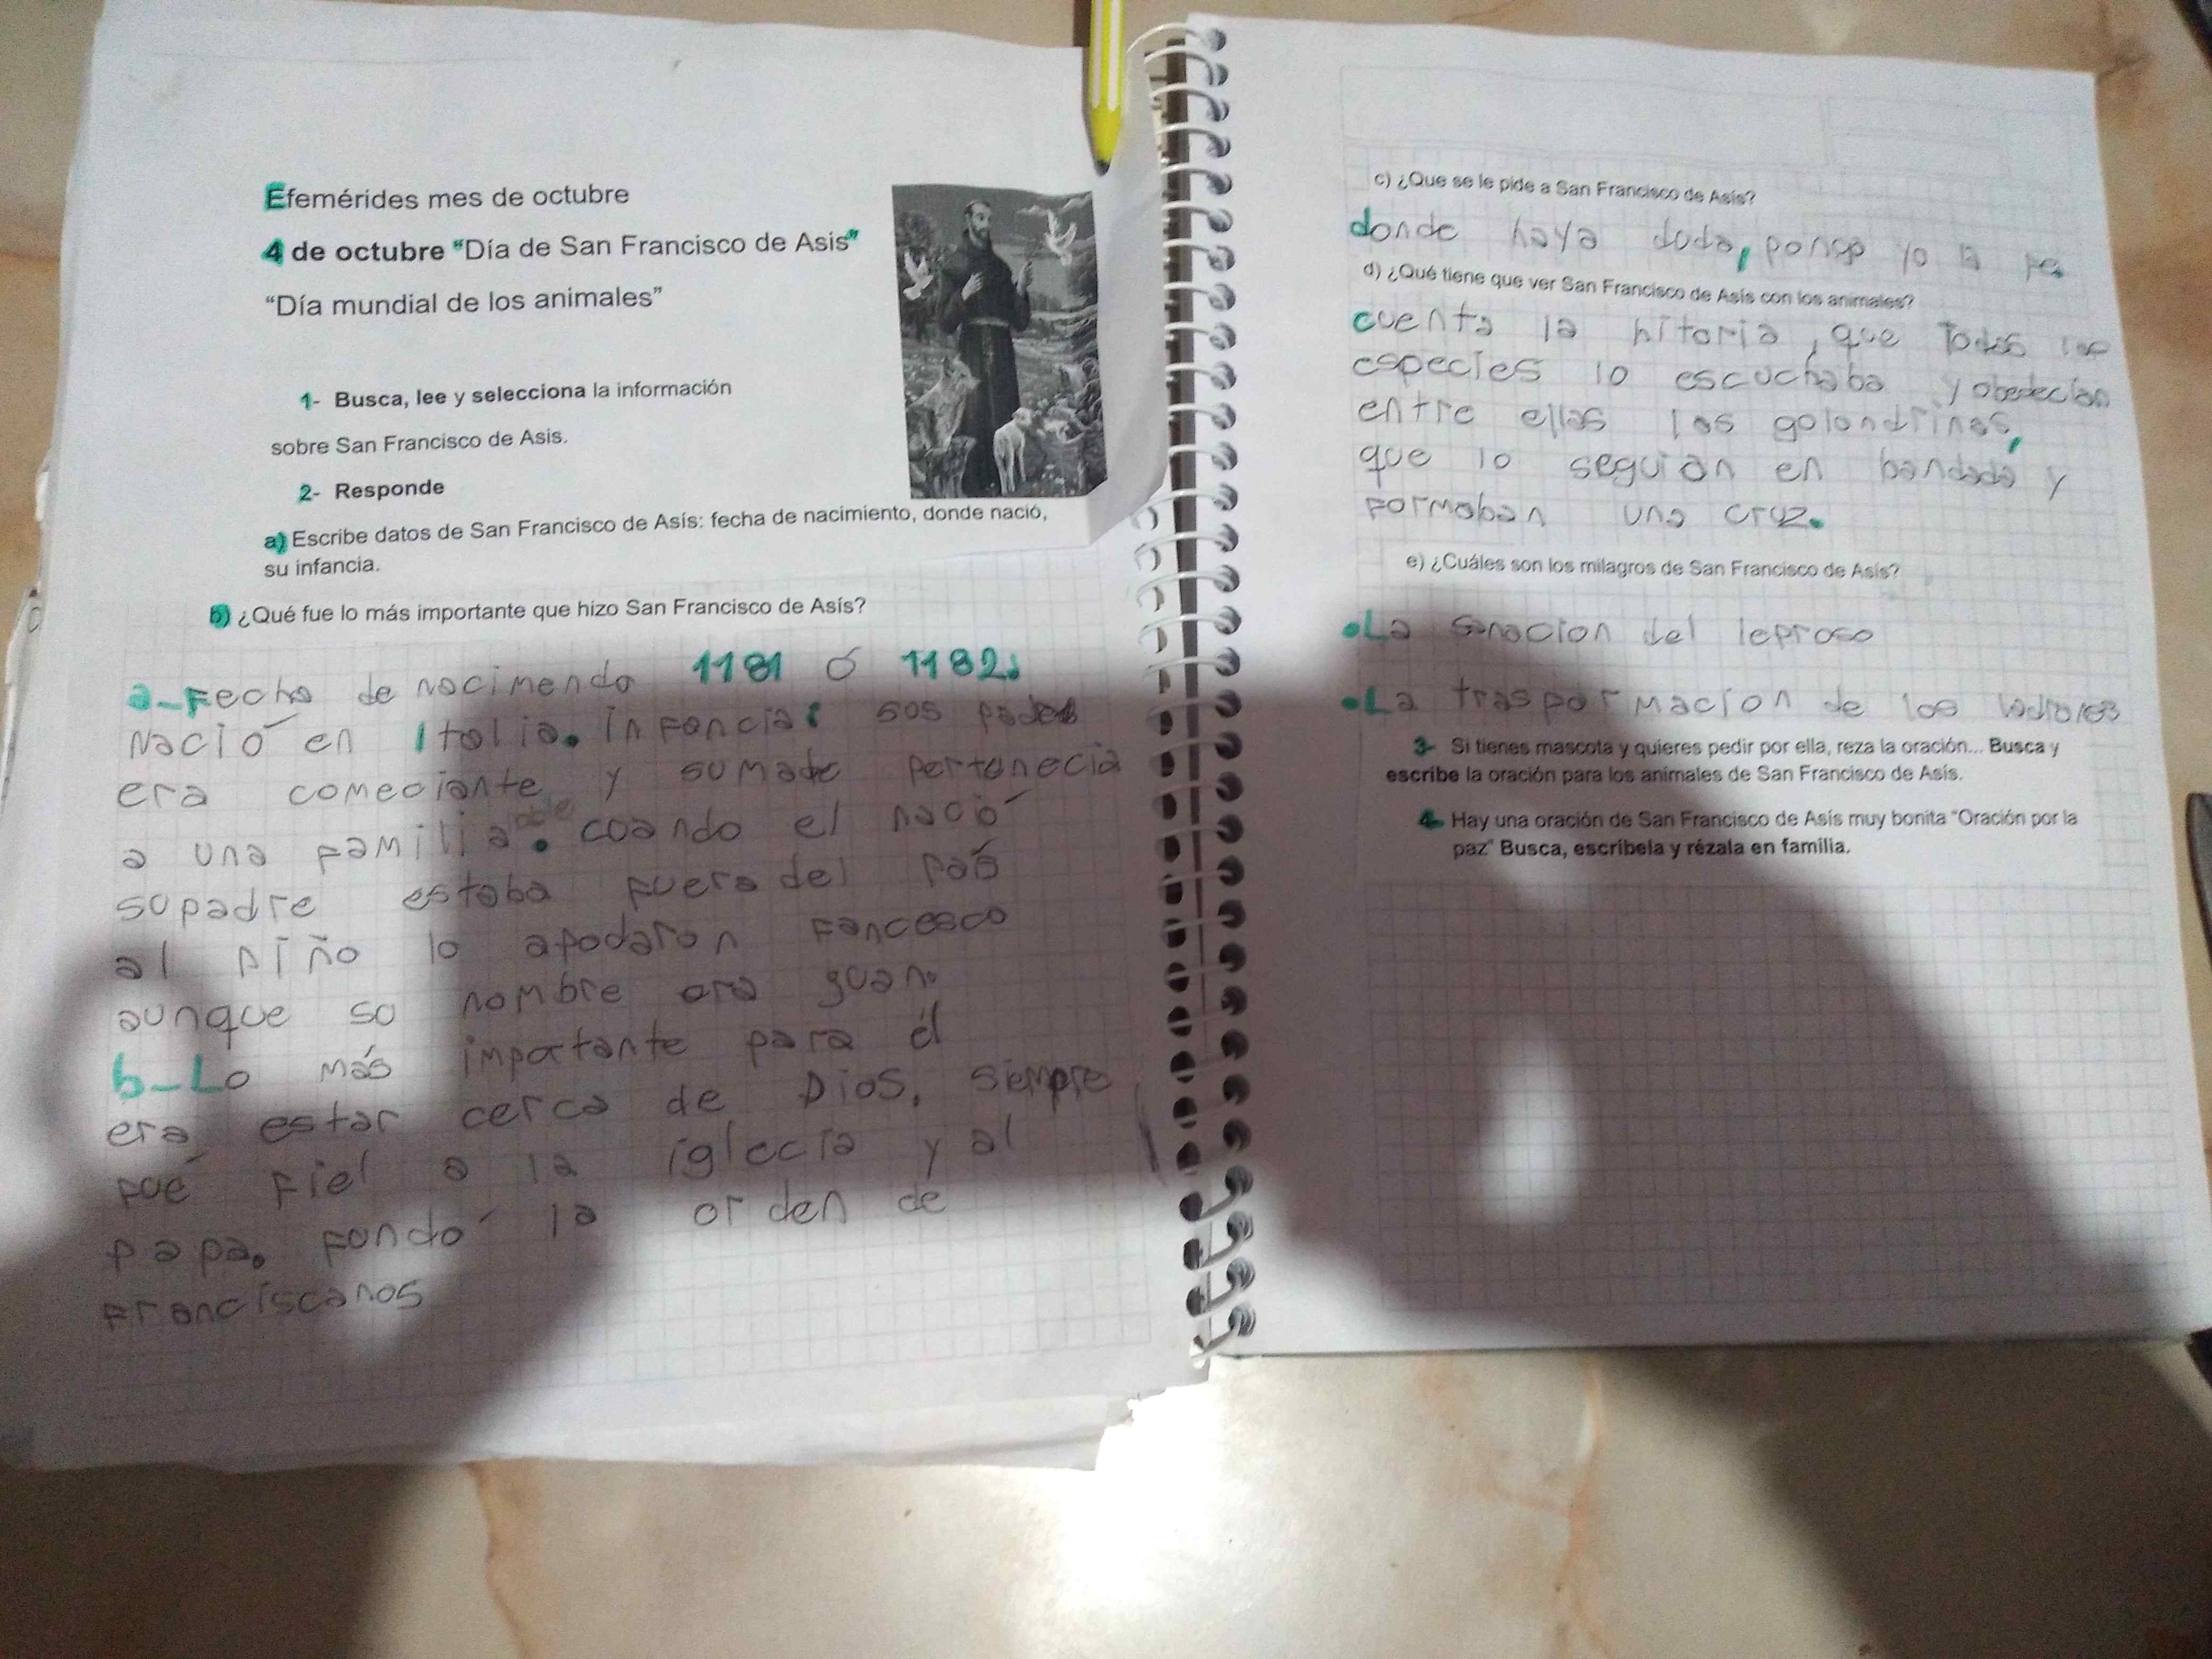 Efemérides mes de octubre
4 de octubre “Día de San Francisco de Asis”
“Día mundial de los animales”
1- Busca, lee y selecciona la información
sobre San Francisco de Asis.
2- Responde
a) Escribe datos de San Francisco de Asís: fecha de nacimiento, donde nació,
su infancia.
b) ¿Qué fue lo más importante que hizo San Francisco de Asís?
a-Fecha de nacimendo 1181 ó 1182.
Nació en Italia. Infancia: sos
era comeciante y sumade pertenecia
a una familia. coando el nació
sopadre estaba fuera del país
al niño lo apodaron Fancesco
aunque so nombre era guan.
b-Lo más importante para él
era estar cerca de Dios. siempre
fué fiel a la iglecia y al
papa. fondó la orden de
Franciscanos
c) ¿Que se le pide a San Francisco de Asís?
donde haya duda, ponga yo la fe
d) ¿Qué tiene que ver San Francisco de Asís con los animales?
cuenta la hitoria, que Todas las
especies lo escuchaba y obedecian
entre ellas las golondrinas,
que lo seguian en bandada y
formaban una cruz.
e) ¿Cuáles son los milagros de San Francisco de Asís?
•La sanacion del leproso
•La trasformacion de los ladrones
3- Si tienes mascota y quieres pedir por ella, reza la oración... Busca y
escribe la oración para los animales de San Francisco de Asís.
4- Hay una oración de San Francisco de Asís muy bonita “Oración por la
paz” Busca, escríbela y rézala en familia.